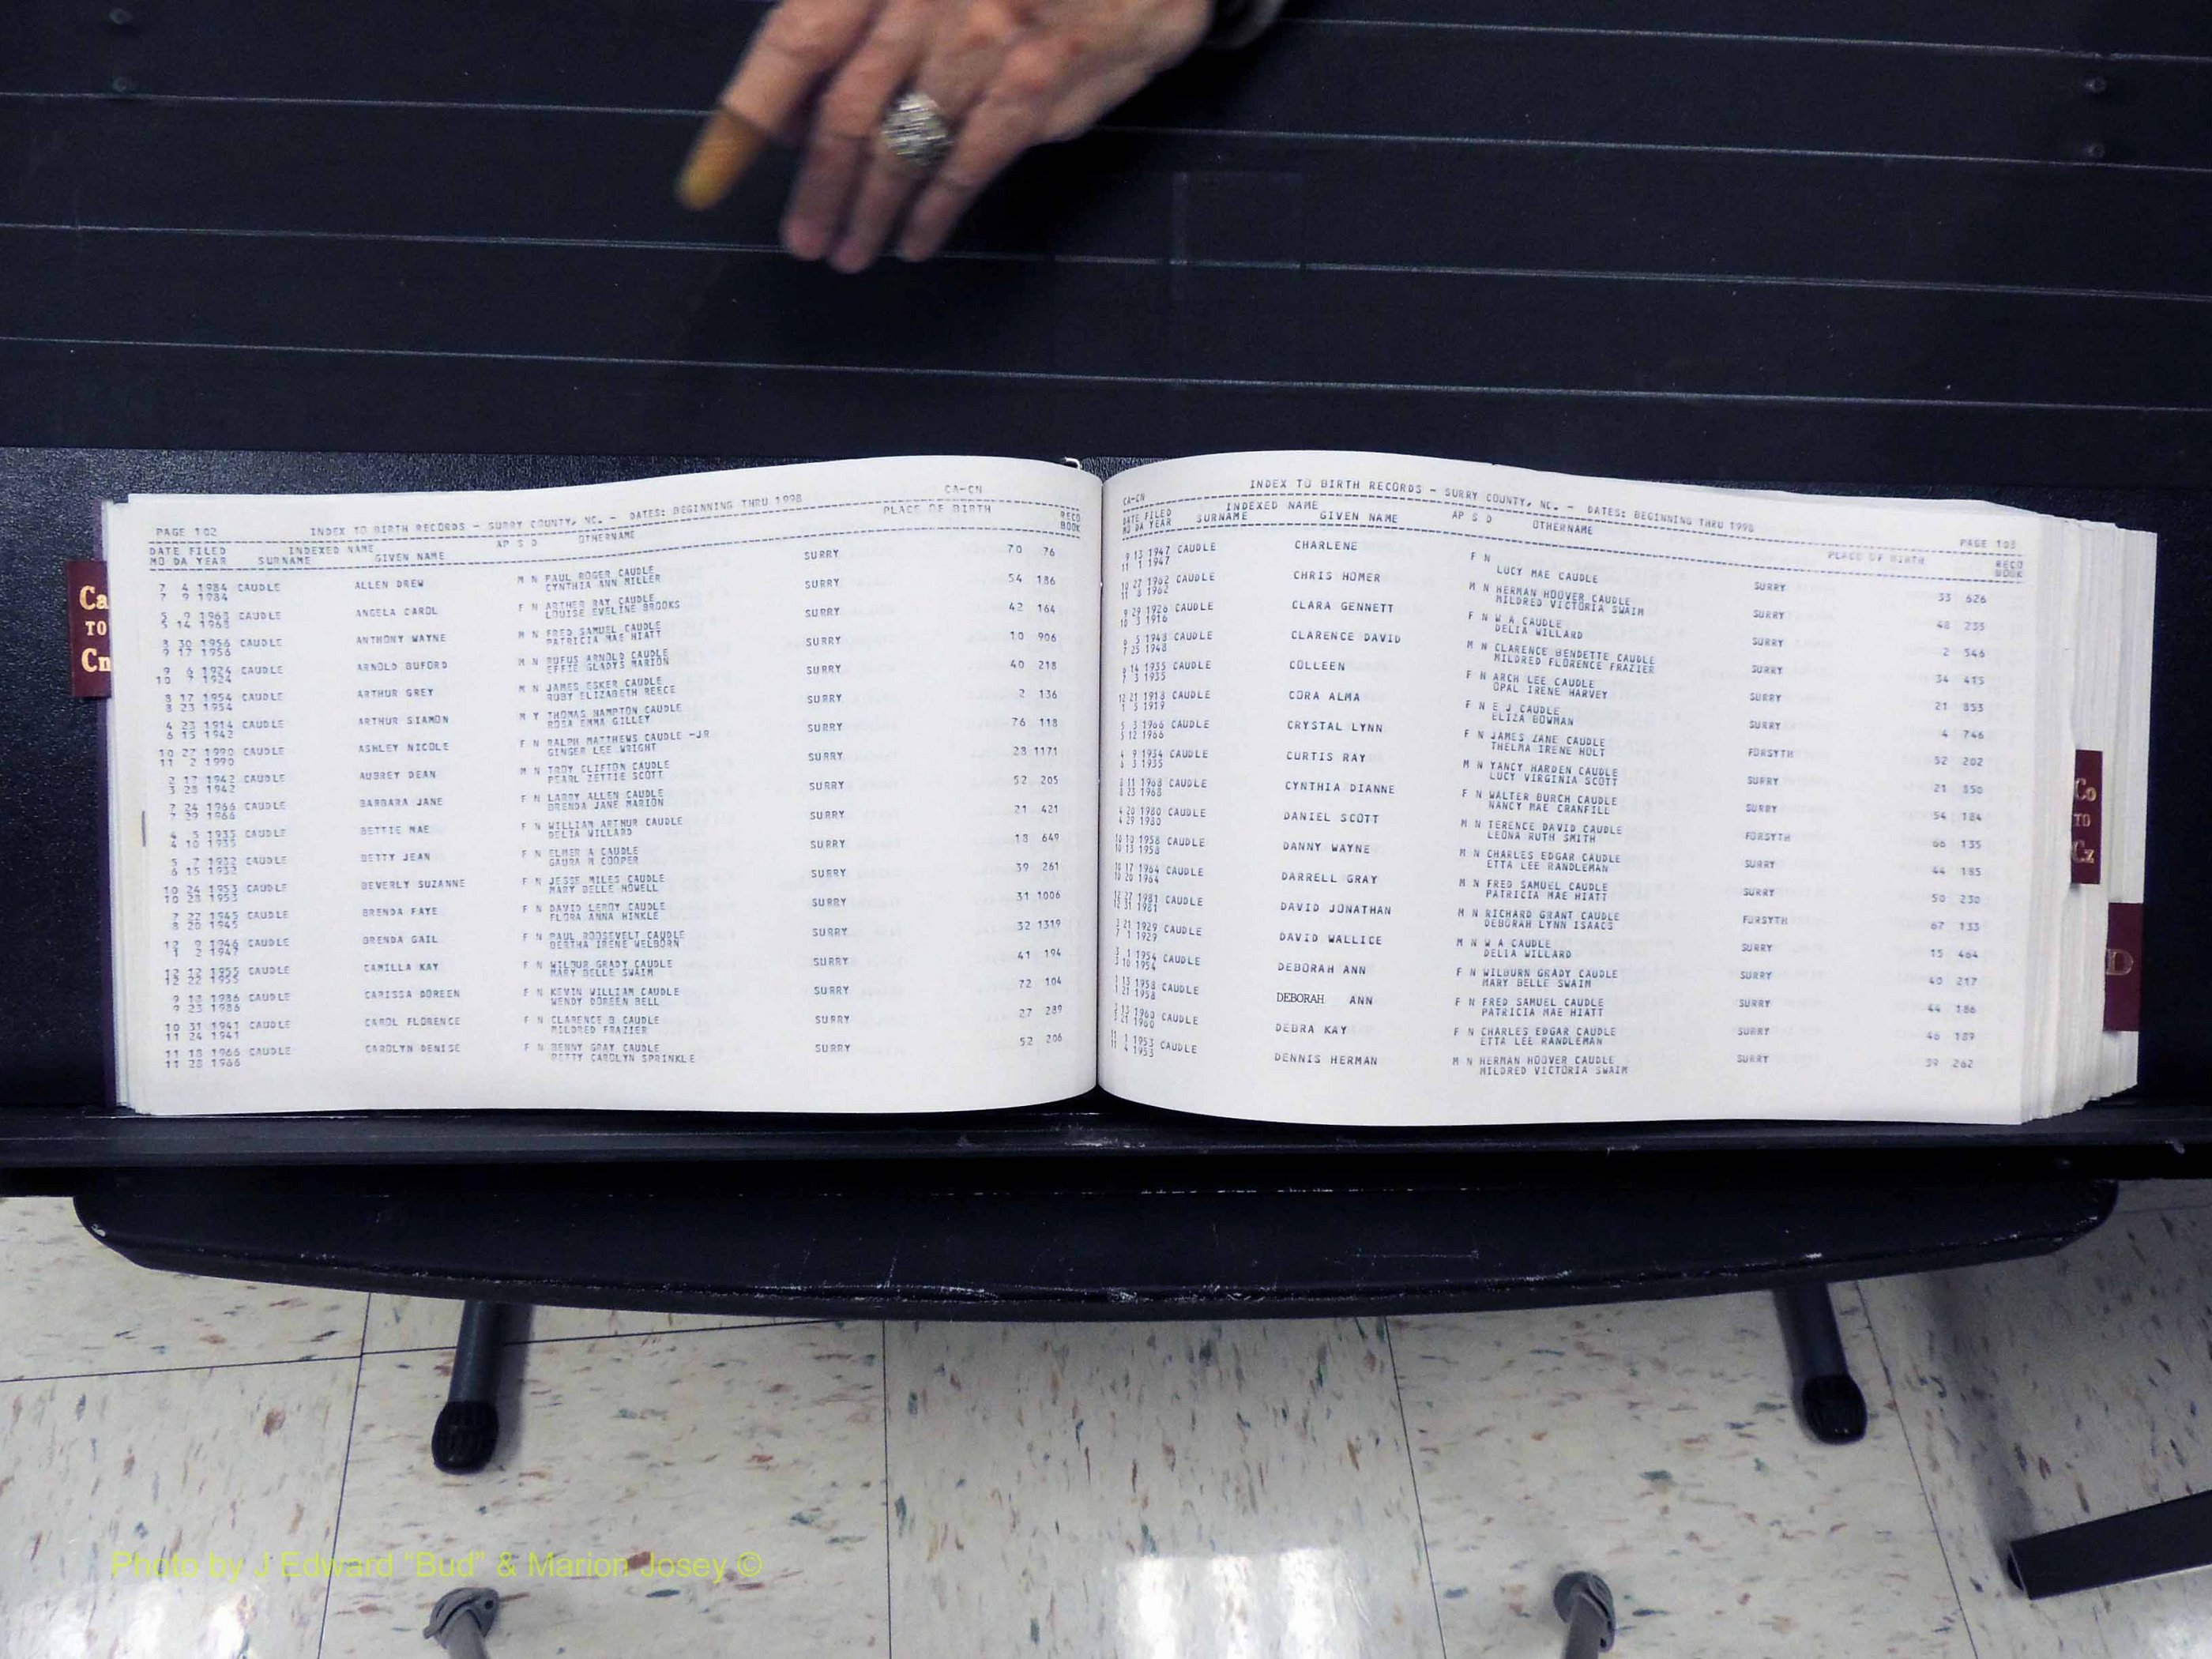 Ca
TO
Cn
PAGE 102 INDEX TO BIRTH RECORDS - SURRY COUNTY, NC. - DATES: BEGINNING THRU 1998 CA-CN
DATE FILED INDEXED NAME AP S D OTHERNAME PLACE OF BIRTH RECO
MO DA YEAR SURNAME GIVEN NAME BOOK
7 4 1984 CAUDLE ALLEN DREW M N PAUL ROGER CAUDLE SURRY 70 76
7 9 1984 CYNTHIA ANN MILLER
5 9 1968 CAUDLE ANGELA CAROL F N ARTHER RAY CAUDLE SURRY 54 186
5 14 1968 LOUISE EVELINE BROOKS
8 30 1956 CAUDLE ANTHONY WAYNE M N FRED SAMUEL CAUDLE SURRY 42 164
9 17 1956 PATRICIA MAE HIATT
9 6 1924 CAUDLE ARNOLD BUFORD M N RUFUS ARNOLD CAUDLE SURRY 10 906
10 7 1924 EFFIE GLADYS MARION
8 17 1954 CAUDLE ARTHUR GREY M N JAMES ESKER CAUDLE SURRY 40 218
8 23 1954 RUBY ELIZABETH REECE
4 23 1914 CAUDLE ARTHUR SIAMON M Y THOMAS HAMPTON CAUDLE SURRY 2 136
6 15 1942 ROSA EMMA GILLEY
10 27 1990 CAUDLE ASHLEY NICOLE F N RALPH MATTHEWS CAUDLE -JR SURRY 76 118
11 2 1990 GINGER LEE WRIGHT
2 17 1942 CAUDLE AUBREY DEAN M N TROY CLIFTON CAUDLE SURRY 28 1171
3 28 1942 PEARL ZETTIE SCOTT
7 24 1966 CAUDLE BARBARA JANE F N LARRY ALLEN CAUDLE SURRY 52 205
7 29 1966 BRENDA JANE MARION
4 5 1935 CAUDLE BETTIE MAE F N WILLIAM ARTHUR CAUDLE SURRY 21 421
4 10 1935 DELIA WILLARD
5 7 1932 CAUDLE BETTY JEAN F N ELMER A CAUDLE SURRY 18 649
6 15 1932 GAURA M COOPER
10 24 1953 CAUDLE BEVERLY SUZANNE F N JESSE MILES CAUDLE SURRY 39 261
10 28 1953 MARY BELLE HOWELL
7 22 1945 CAUDLE BRENDA FAYE F N DAVID LEROY CAUDLE SURRY 31 1006
8 20 1945 FLORA ANNA HINKLE
12 9 1946 CAUDLE BRENDA GAIL F N PAUL ROOSEVELT CAUDLE SURRY 32 1319
1 2 1947 BERTHA IRENE WELBORN
12 12 1955 CAUDLE CAMILLA KAY F N WILBUR GRADY CAUDLE SURRY 41 194
12 22 1955 MARY BELLE SWAIM
9 18 1986 CAUDLE CARISSA DOREEN F N KEVIN WILLIAM CAUDLE SURRY 72 104
9 23 1986 WENDY DOREEN BELL
10 31 1941 CAUDLE CAROL FLORENCE F N CLARENCE B CAUDLE SURRY 27 289
11 24 1941 MILDRED FRAZIER
11 18 1966 CAUDLE CAROLYN DENISE F N BENNY GRAY CAUDLE SURRY 52 206
11 28 1966 BETTY CAROLYN SPRINKLE
CA-CN INDEX TO BIRTH RECORDS - SURRY COUNTY, NC. - DATES: BEGINNING THRU 1998 PAGE 103
DATE FILED INDEXED NAME AP S D OTHERNAME PLACE OF BIRTH RECO
MO DA YEAR SURNAME GIVEN NAME BOOK
9 13 1947 CAUDLE CHARLENE F N SURRY 33 626
11 1 1947 LUCY MAE CAUDLE
10 27 1962 CAUDLE CHRIS HOMER M N HERMAN HOOVER CAUDLE SURRY 48 235
11 8 1962 MILDRED VICTORIA SWAIM
9 29 1926 CAUDLE CLARA GENNETT F N W A CAUDLE SURRY 2 546
10 3 1916 DELIA WILLARD
6 5 1948 CAUDLE CLARENCE DAVID M N CLARENCE BENDETTE CAUDLE SURRY 34 415
7 25 1948 MILDRED FLORENCE FRAZIER
6 14 1935 CAUDLE COLLEEN F N ARCH LEE CAUDLE SURRY 21 853
7 3 1935 OPAL IRENE HARVEY
12 21 1918 CAUDLE CORA ALMA F N E J CAUDLE SURRY 4 746
1 5 1919 ELIZA BOWMAN
5 3 1966 CAUDLE CRYSTAL LYNN F N JAMES ZANE CAUDLE FORSYTH 52 202
5 12 1966 THELMA IRENE HOLT
4 9 1934 CAUDLE CURTIS RAY M N YANCY HARDEN CAUDLE SURRY 21 850
6 3 1935 LUCY VIRGINIA SCOTT
8 11 1968 CAUDLE CYNTHIA DIANNE F N WALTER BURCH CAUDLE SURRY 54 184
8 23 1968 NANCY MAE CRANFILL
4 20 1980 CAUDLE DANIEL SCOTT M N TERENCE DAVID CAUDLE FORSYTH 66 135
4 29 1980 LEONA RUTH SMITH
10 10 1958 CAUDLE DANNY WAYNE M N CHARLES EDGAR CAUDLE SURRY 44 185
10 13 1958 ETTA LEE RANDLEMAN
10 17 1964 CAUDLE DARRELL GRAY M N FRED SAMUEL CAUDLE SURRY 50 230
10 20 1964 PATRICIA MAE HIATT
12 27 1981 CAUDLE DAVID JONATHAN M N RICHARD GRANT CAUDLE FORSYTH 67 133
12 31 1981 DEBORAH LYNN ISAACS
3 21 1929 CAUDLE DAVID WALLICE M N W A CAUDLE SURRY 15 464
7 1 1929 DELIA WILLARD
3 1 1954 CAUDLE DEBORAH ANN F N WILBURN GRADY CAUDLE SURRY 40 217
3 10 1954 MARY BELLE SWAIM
1 13 1958 CAUDLE DEBORAH ANN F N FRED SAMUEL CAUDLE SURRY 44 186
1 21 1958 PATRICIA MAE HIATT
3 15 1960 CAUDLE DEBRA KAY F N CHARLES EDGAR CAUDLE SURRY 46 189
3 21 1960 ETTA LEE RANDLEMAN
11 1 1953 CAUDLE DENNIS HERMAN M N HERMAN HOOVER CAUDLE SURRY 39 262
11 4 1953 MILDRED VICTORIA SWAIM
Co
TO
Cz
D
Photo by J Edward "Bud" & Marion Josey ©